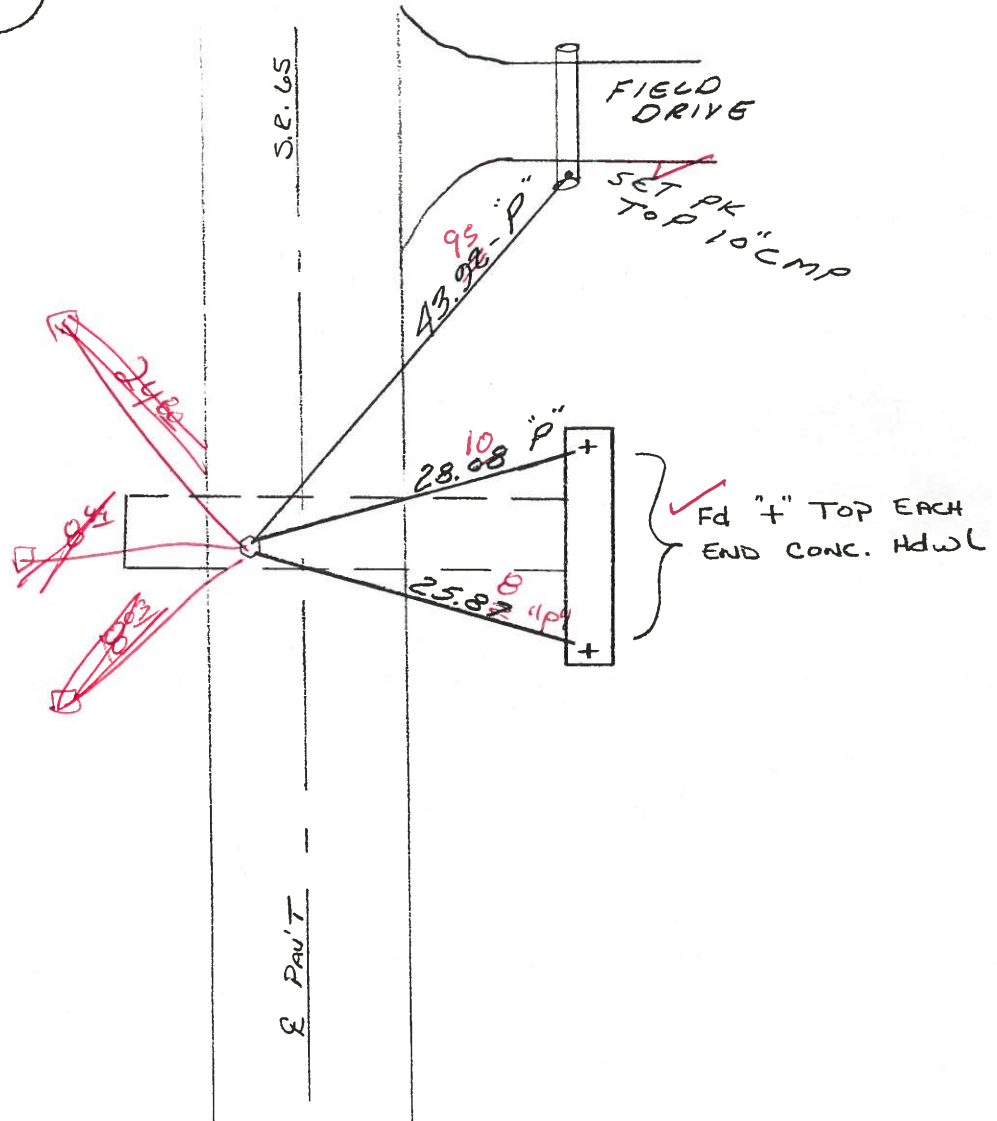 S.R. 65
FIELD
DRIVE
SET PK
TOP 10" CMP
95
43.92 - "P"
2480
10
28.08 "P"
Fd "+" TOP EACH
END CONC. HdwL
8
25.87 "P"
℄ PAV'T